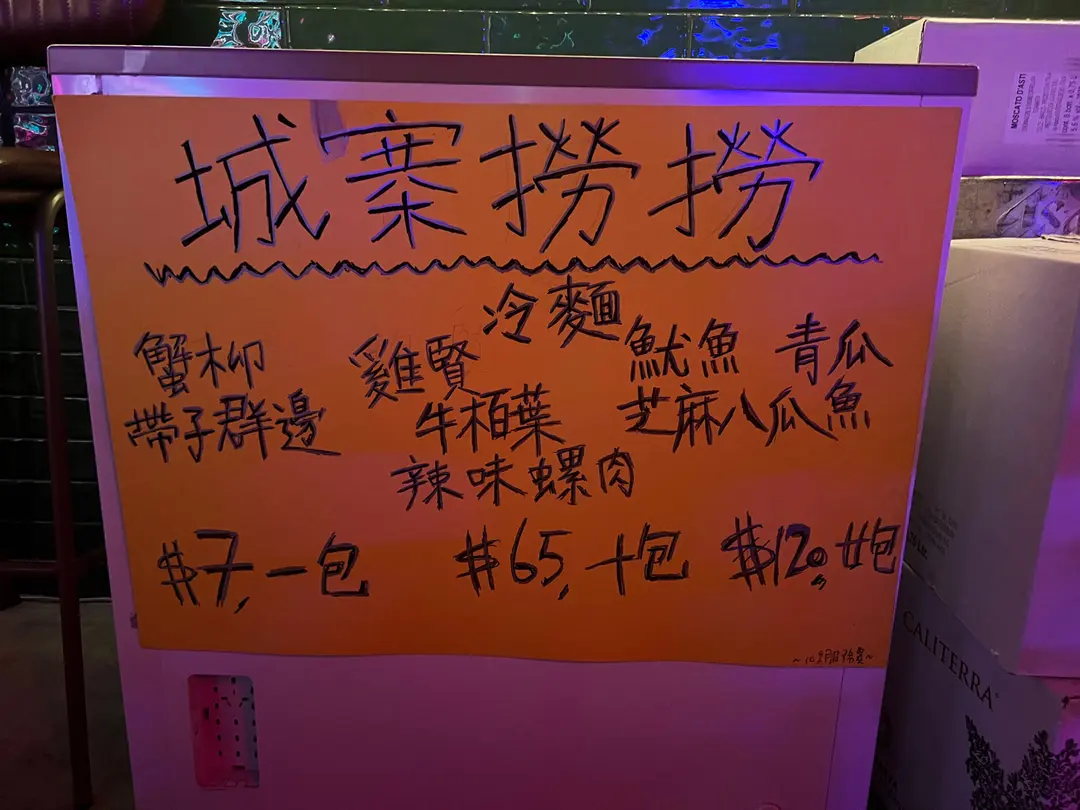 城寨撈撈
冷麵
蟹柳 雞賢 魷魚 青瓜
帶子群邊 牛栢葉 芝麻八瓜魚
辣味螺肉
$7,一包 $65,十包 $120,廿包
MOSCATO D'ASTI
CALITERRA